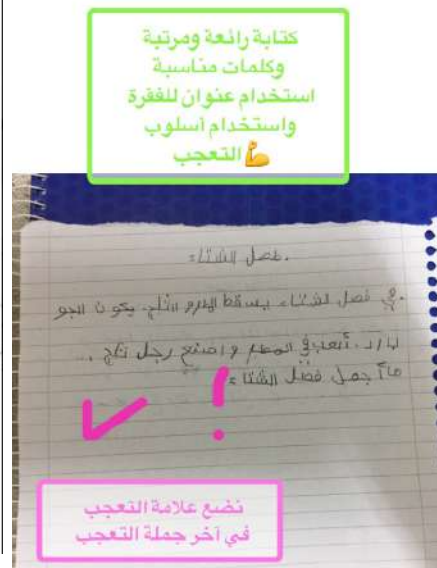 كتابة رائعة ومرتبة
وكلمات مناسبة
استخدام عنوان للفقرة
واستخدام أسلوب
التعجب 💪
.فصل الشتاء:
.في فصل لشتاء يسقط المطر و الثلج. يكون الجو
بارد. ألعب في المطر و اصنع رجل ثلج..
ما أجمل فصل الشتاء:
!
نضع علامة التعجب
في آخر جملة التعجب